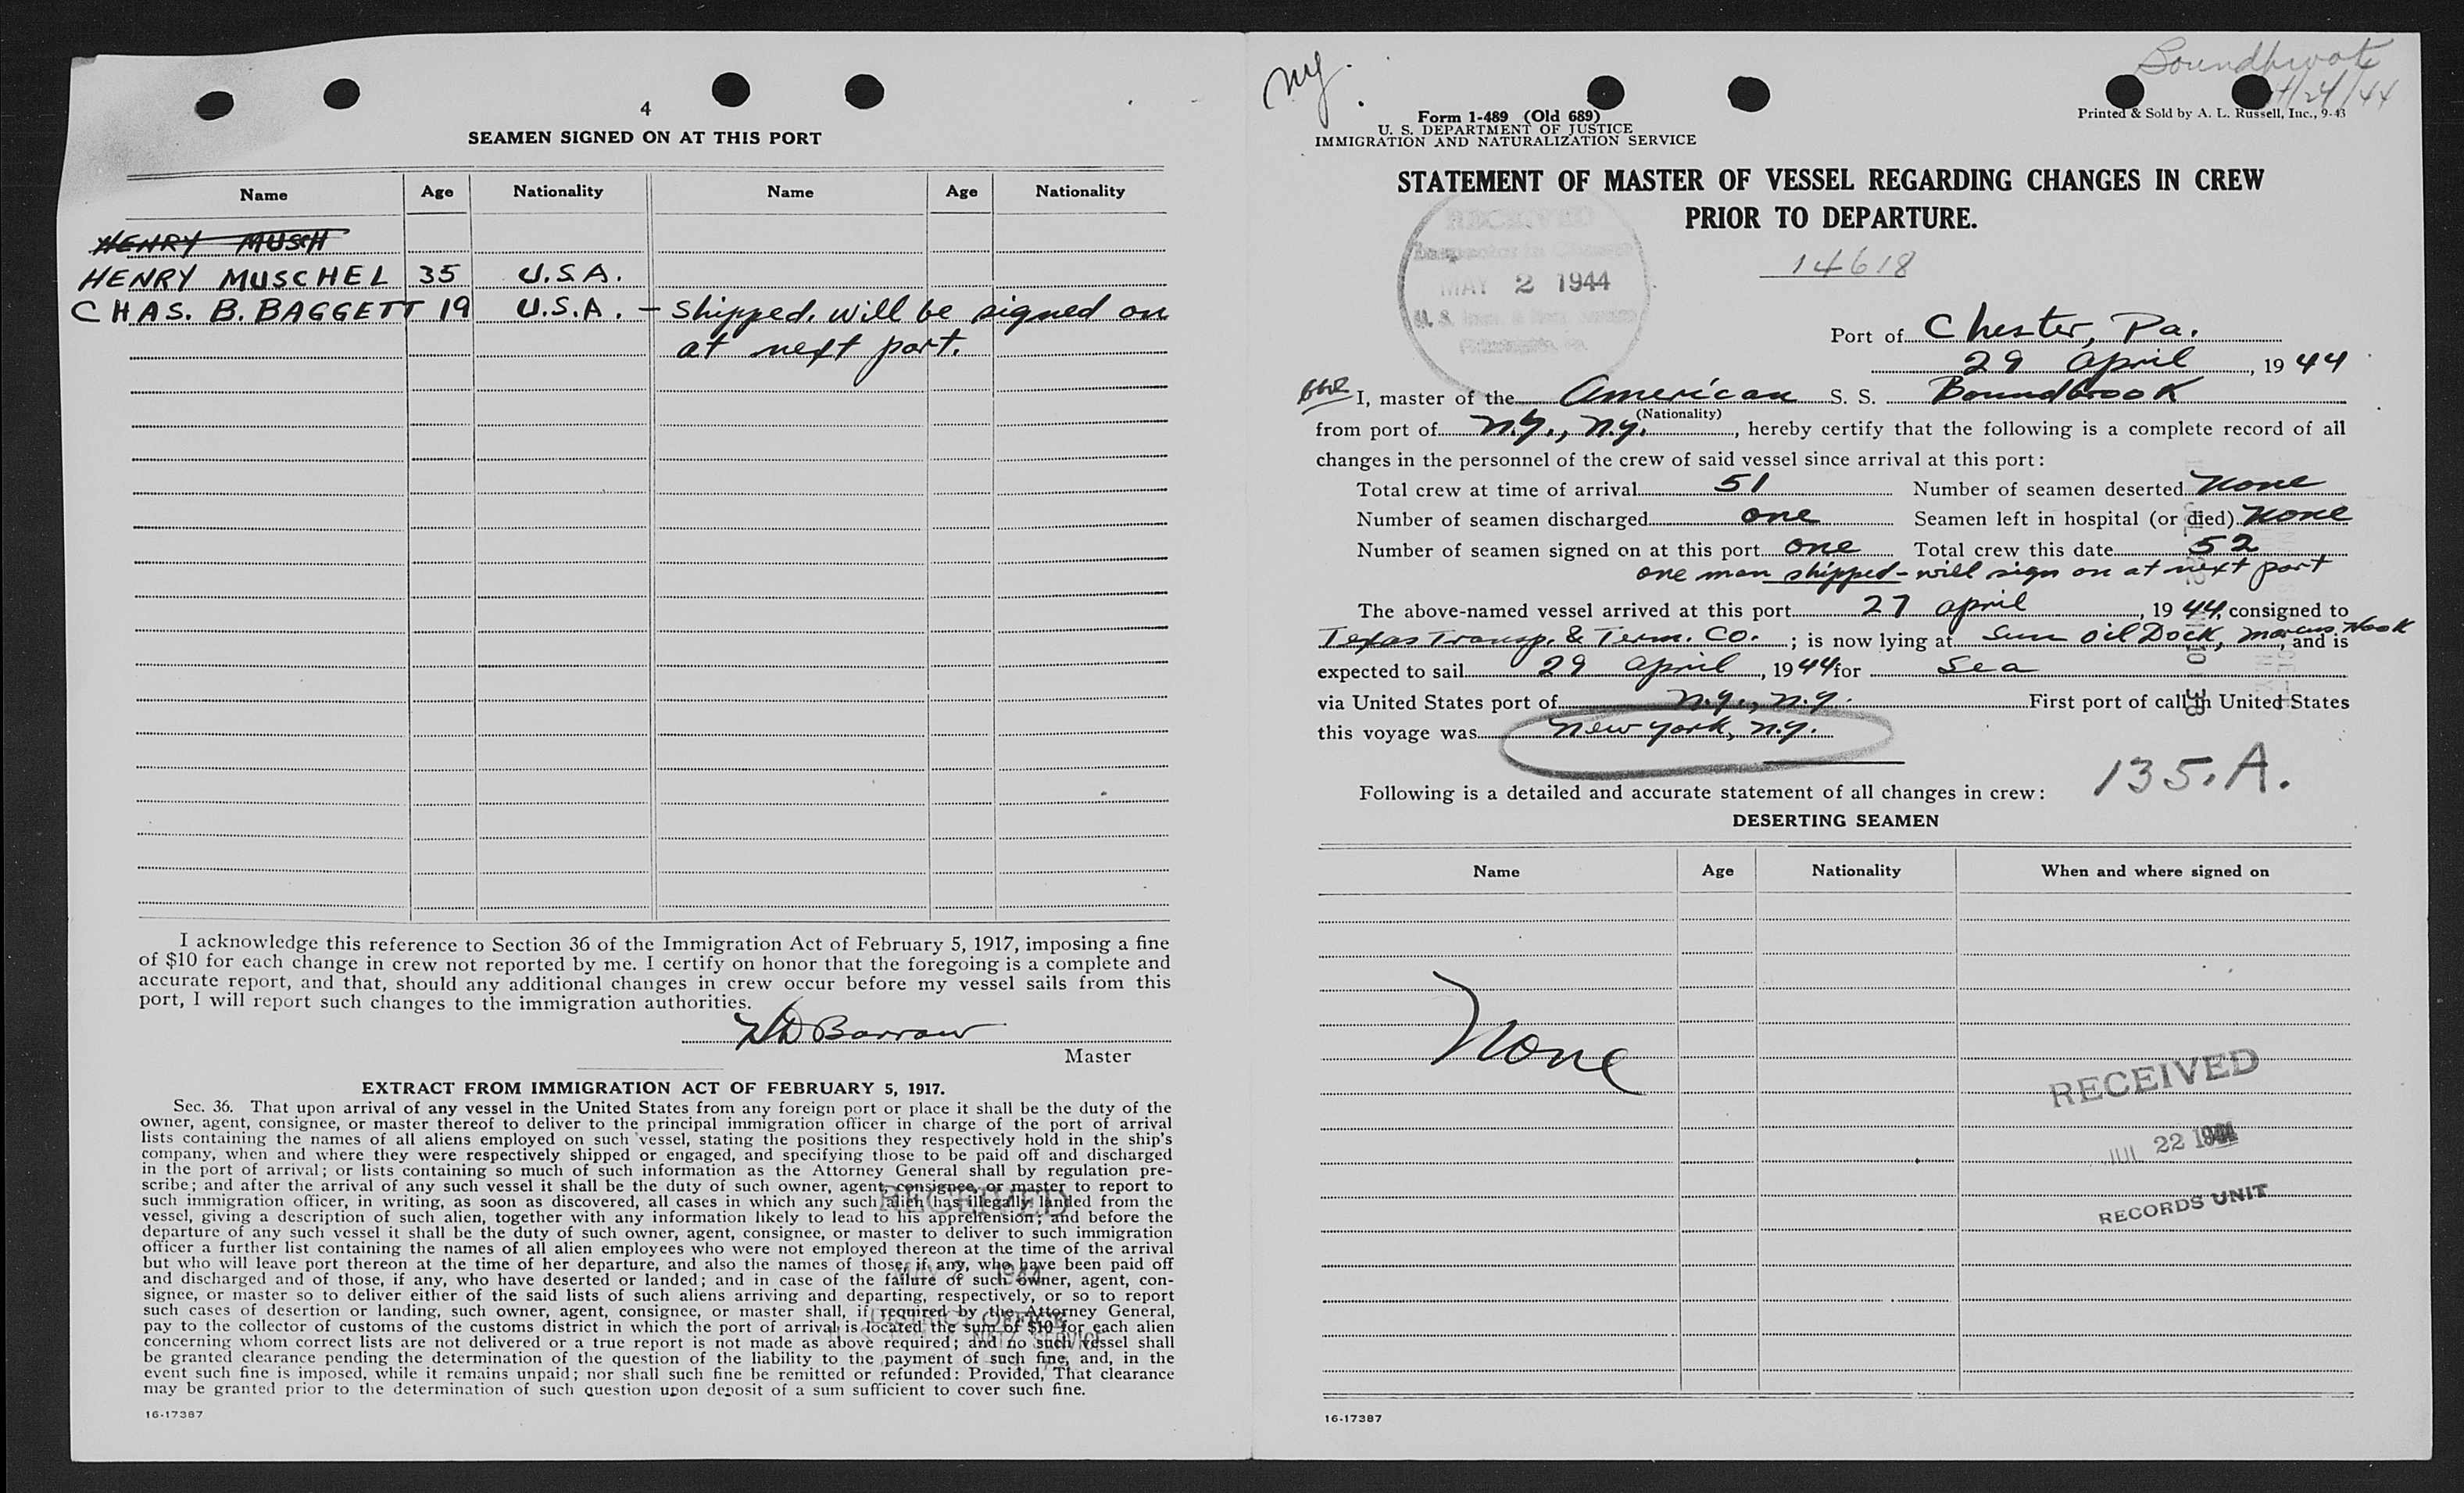 4
SEAMEN SIGNED ON AT THIS PORT
Name Age Nationality Name Age Nationality
HENRY MUSCH
HENRY MUSCHEL 35 U.S.A.
CHAS. B. BAGGETT 19 U.S.A. - Shipped, will be signed on
at next port.
I acknowledge this reference to Section 36 of the Immigration Act of February 5, 1917, imposing a fine
of $10 for each change in crew not reported by me. I certify on honor that the foregoing is a complete and
accurate report, and that, should any additional changes in crew occur before my vessel sails from this
port, I will report such changes to the immigration authorities.
Barrow
Master
EXTRACT FROM IMMIGRATION ACT OF FEBRUARY 5, 1917.
Sec. 36. That upon arrival of any vessel in the United States from any foreign port or place it shall be the duty of the
owner, agent, consignee, or master thereof to deliver to the principal immigration officer in charge of the port of arrival
lists containing the names of all aliens employed on such vessel, stating the positions they respectively hold in the ship's
company, when and where they were respectively shipped or engaged, and specifying those to be paid off and discharged
in the port of arrival; or lists containing so much of such information as the Attorney General shall by regulation pre-
scribe; and after the arrival of any such vessel it shall be the duty of such owner, agent, consignee, or master to report to
such immigration officer, in writing, as soon as discovered, all cases in which any such alien has illegally landed from the
vessel, giving a description of such alien, together with any information likely to lead to his apprehension; and before the
departure of any such vessel it shall be the duty of such owner, agent, consignee, or master to deliver to such immigration
officer a further list containing the names of all alien employees who were not employed thereon at the time of the arrival
but who will leave port thereon at the time of her departure, and also the names of those, if any, who have been paid off
and discharged and of those, if any, who have deserted or landed; and in case of the failure of such owner, agent, con-
signee, or master so to deliver either of the said lists of such aliens arriving and departing, respectively, or so to report
such cases of desertion or landing, such owner, agent, consignee, or master shall, if required by the Attorney General,
pay to the collector of customs of the customs district in which the port of arrival is located the sum of $10 for each alien
concerning whom correct lists are not delivered or a true report is not made as above required; and no such vessel shall
be granted clearance pending the determination of the question of the liability to the payment of such fine, and, in the
event such fine is imposed, while it remains unpaid; nor shall such fine be remitted or refunded: Provided, That clearance
may be granted prior to the determination of such question upon deposit of a sum sufficient to cover such fine.
RECEIVED
MAY 2 1944
DISTRICT OFFICE
16-17387
NY.
Boundbrook
4/24/44
Form 1-489 (Old 689)
U. S. DEPARTMENT OF JUSTICE
IMMIGRATION AND NATURALIZATION SERVICE
Printed & Sold by A. L. Russell, Inc., 9-43
STATEMENT OF MASTER OF VESSEL REGARDING CHANGES IN CREW
PRIOR TO DEPARTURE.
RECEIVED
MAY 2 1944
14618
Port of Chester, Pa.
29 April, 1944
I, master of the American S. S. Boundbrook
(Nationality)
from port of N.Y., N.Y., hereby certify that the following is a complete record of all
changes in the personnel of the crew of said vessel since arrival at this port:
Total crew at time of arrival 51 Number of seamen deserted None
Number of seamen discharged one Seamen left in hospital (or died) None
Number of seamen signed on at this port one Total crew this date 52
one man shipped - will sign on at next port
The above-named vessel arrived at this port 27 April, 1944, consigned to
Texas Transp. & Term. Co.; is now lying at Sun Oil Dock, Marcus Hook, and is
expected to sail 29 April, 1944 for Sea
via United States port of N.Y., N.Y. First port of call in United States
this voyage was New York, N.Y.
135.A.
Following is a detailed and accurate statement of all changes in crew:
DESERTING SEAMEN
Name Age Nationality When and where signed on
None
RECEIVED
JUL 22 1944
RECORDS UNIT
16-17387